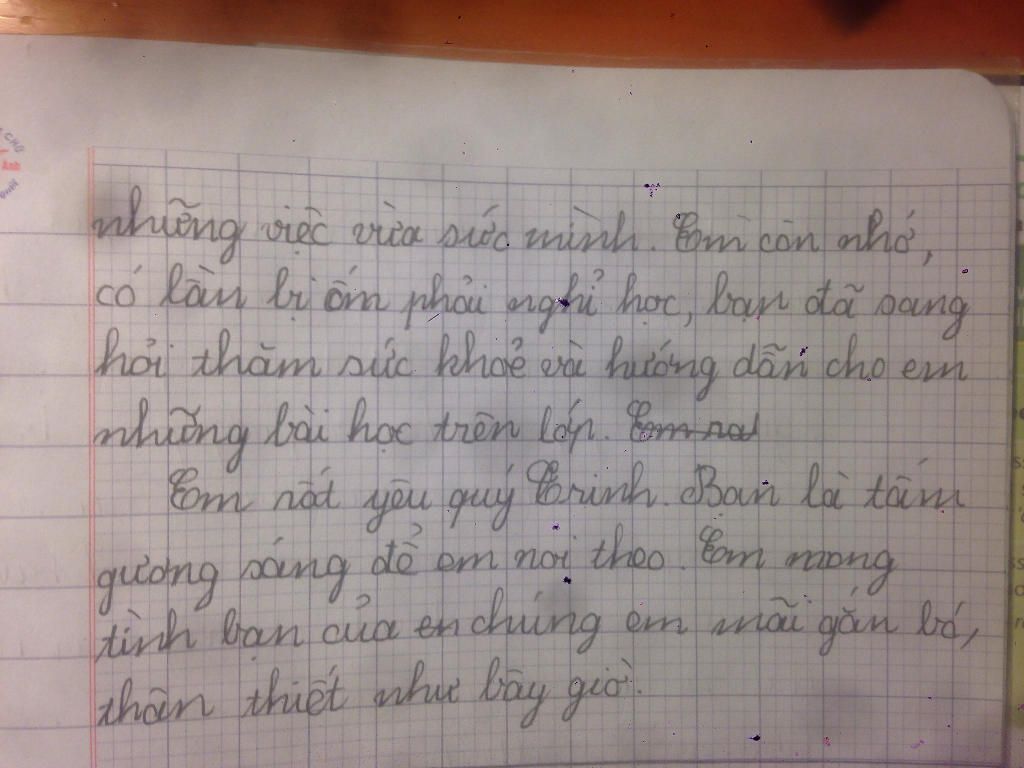 những việc vừa sức mình. Em còn nhớ,
có lần bị ốm phải nghỉ học, bạn đã sang
hỏi thăm sức khoẻ và hướng dẫn cho em
những bài học trên lớp. Em rất
Em rất yêu quý Trinh. Bạn là tấm
gương sáng để em noi theo. Em mong
tình bạn của en chúng em mãi gắn bó,
thân thiết như bây giờ.